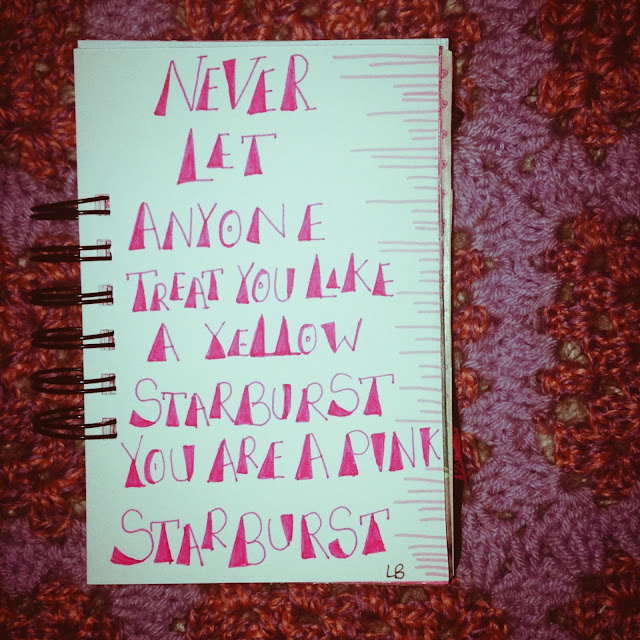 NEVER
LET
ANYONE
TREAT YOU LIKE
A YELLOW
STARBURST
YOU ARE A PINK
STARBURST
LB